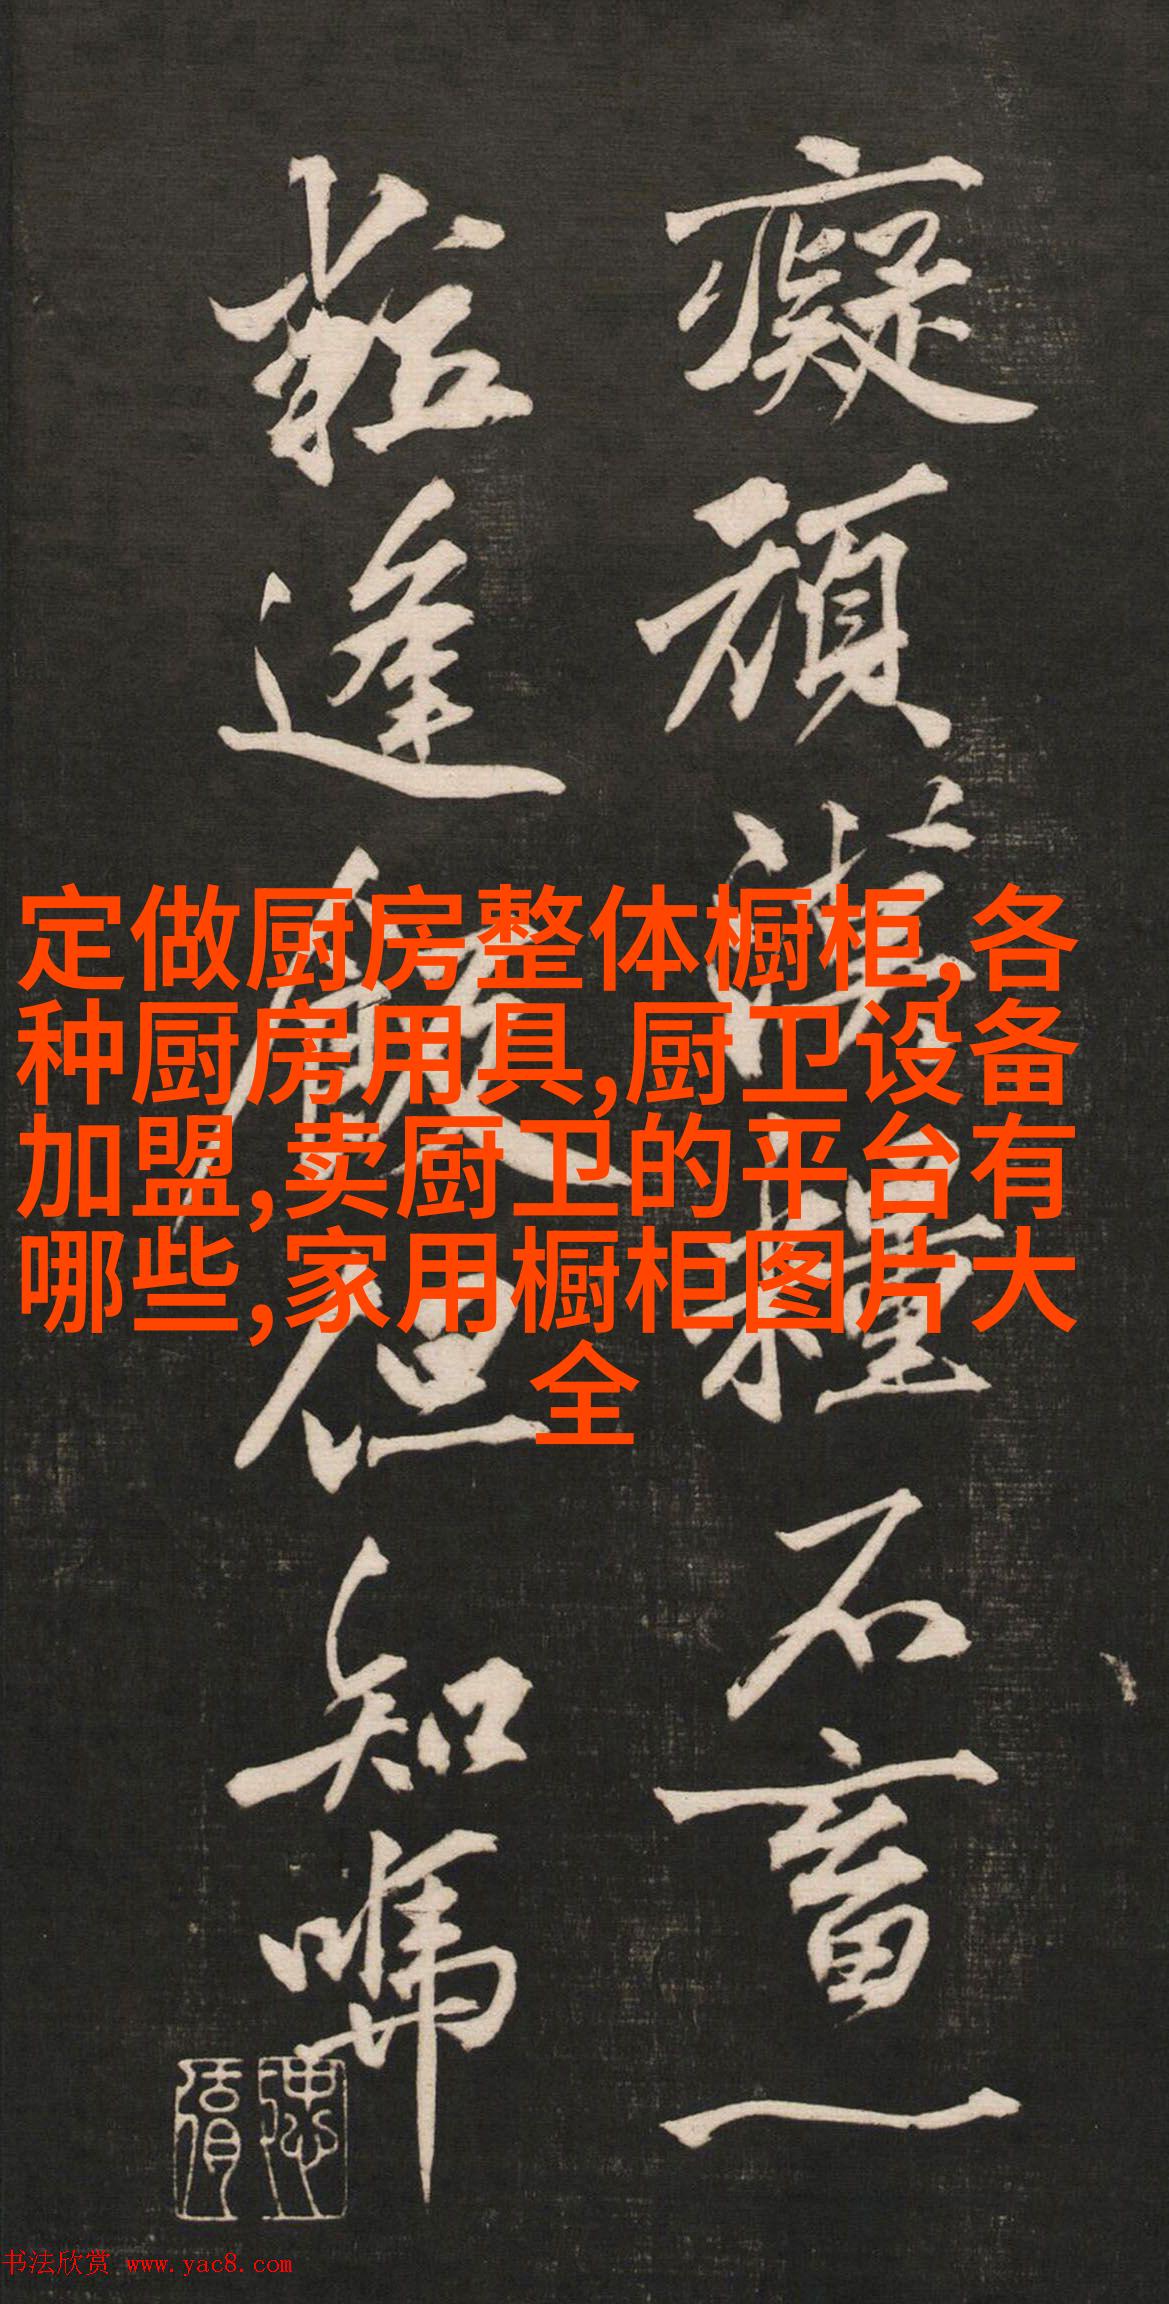 癡頑漢種石畜一
逢飯但知
定做厨房整体橱柜,各
种厨房用具,厨卫设备
加盟,卖厨卫的平台有
哪些,家用橱柜图片大
全
书法欣赏 www.yac8.com